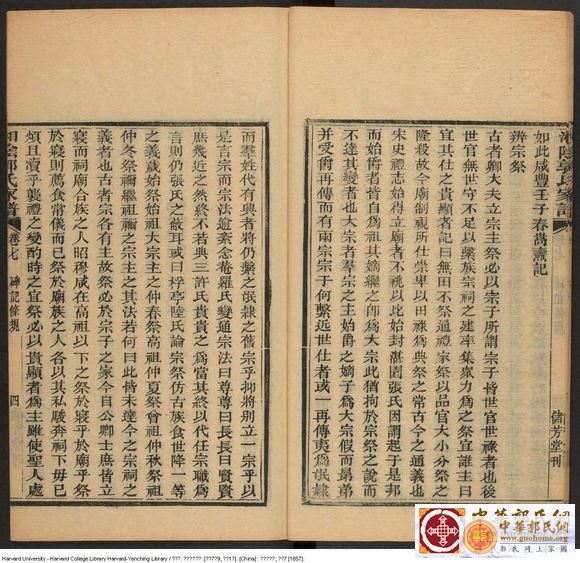 湘陰郭氏家譜
儲芳堂刊
如此咸豐壬子春嵩燾記
辨宗祭
古者卿大夫立宗主祭必以宗子所謂宗子皆世官世祿者也後
世官無世守不足以繫族宗祠之建率集衆力為之祭宜誰主曰
宜其仕之貴顯者記曰無田不祭通禮家祭以品官大小分祭之
隆殺故今廟制視所仕崇卑以田祿為典祭之常古今之通義也
宋史禮志始得立廟者不祧以比始封湛園張氏因謂起于是邦
而始爵者皆自為祖其嫡繼之卽為大宗此猶拘於宗祭之說而
不達其變者也大宗者羣宗之主始爵之嫡子為大宗假而昴弟
并受爵而傳有兩宗宗于何繫近世仕者或一再傳夷為氓隸
而羣姓代有興者將仍繫之氓隸之舊宗乎抑將別立一宗乎以
是言宗而宗法愈紊念菴羅氏變通宗法曰尊尊曰長長曰賢賢
庶幾近之然終不若典三許氏貴貴之為當其終以代任宗職為
言則仍張氏之敝耳或曰桴亭陸氏論宗祭仿古族食世降一等
之義歲始祭始祖大宗主之仲春祭高祖仲夏祭曾祖仲秋祭祖
仲冬祭禰繼祖禰之宗主之其法若何曰此皆未達今之宗祠之
義者也古者宗各有主故祭必於宗子之家今自公卿士庶皆立
寢而祠廟合族之人昭穆咸在高祖以下之祭於寢乎於廟乎祭
於寢則薦食常儀而已祭於廟族之人各以其私駿奔祠下毋已
煩且瀆乎襲禮之變酌時之宜祭必以貴顯者為主雖使聖人處
湘陰郭氏家譜
卷七 碑記條規
四
中華郭氏網
中華郭氏網
郭氏隆上家園
Harvard University - Harvard College Library Harvard-Yenching Library / ???, ??????. [????9, ??1?]. [China] : ?????:, ??7 [1857].